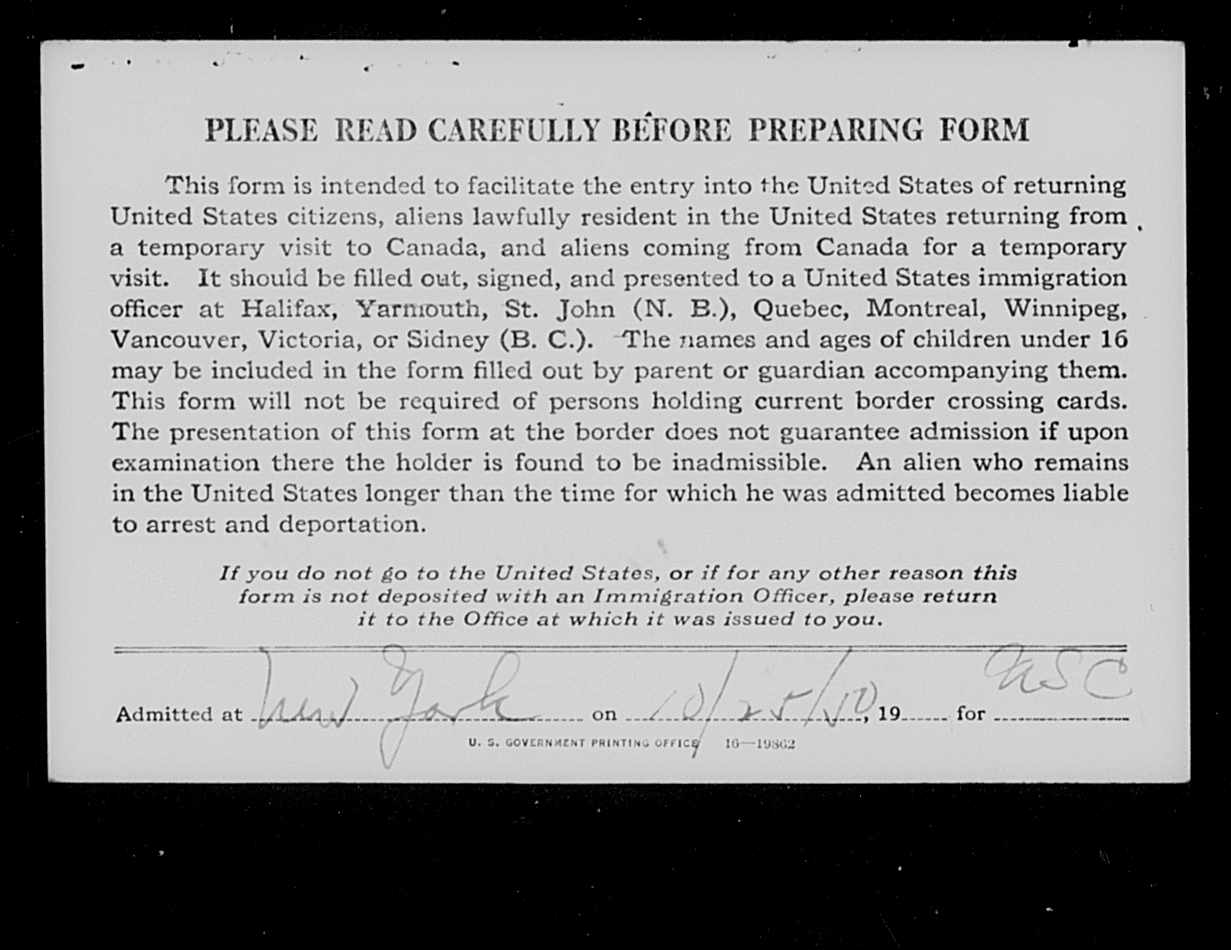 PLEASE READ CAREFULLY BEFORE PREPARING FORM
This form is intended to facilitate the entry into the United States of returning
United States citizens, aliens lawfully resident in the United States returning from
a temporary visit to Canada, and aliens coming from Canada for a temporary
visit. It should be filled out, signed, and presented to a United States immigration
officer at Halifax, Yarmouth, St. John (N. B.), Quebec, Montreal, Winnipeg,
Vancouver, Victoria, or Sidney (B. C.). The names and ages of children under 16
may be included in the form filled out by parent or guardian accompanying them.
This form will not be required of persons holding current border crossing cards.
The presentation of this form at the border does not guarantee admission if upon
examination there the holder is found to be inadmissible. An alien who remains
in the United States longer than the time for which he was admitted becomes liable
to arrest and deportation.
If you do not go to the United States, or if for any other reason this
form is not deposited with an Immigration Officer, please return
it to the Office at which it was issued to you.
Admitted at New York on 10/25/50, 19 for USC
U. S. GOVERNMENT PRINTING OFFICE 16—19862